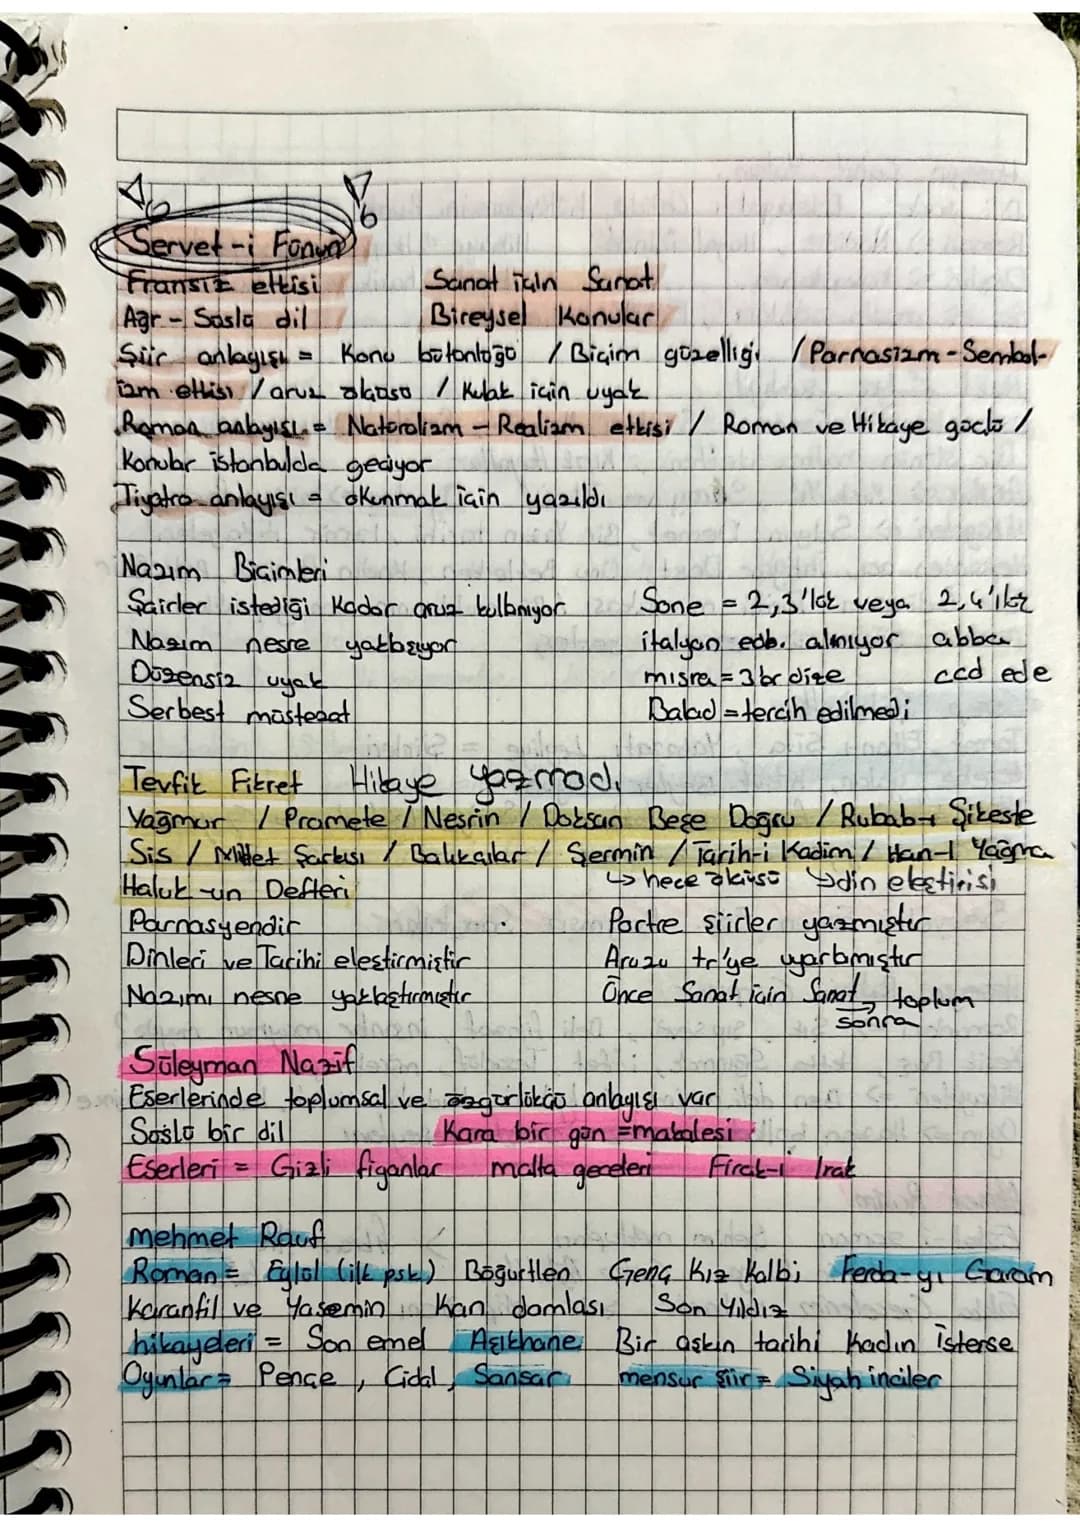 Servet-i Fünun
Fransız etkisi Sanat için Sanat
Ağır-Süslü dil Bireysel Konular
Şiir anlayışı = Konu bütünlüğü / Biçim güzelliği / Parnasizm-Sembol-
izm etkisi / aruz ölçüsü / Kulak için uyak
Roman anlayışı = Natüralizm - Realizm etkisi / Roman ve Hikaye güçlü /
Konular istanbulda geçiyor
Tiyatro anlayışı = okunmak için yazıldı
Nazım Biçimleri
Şairler istediği kadar aruz kullanıyor Sone = 2,3'lük veya 2,4'lük
Nazım nesre yaklaşıyor italyan edb. alınıyor abba
Düzensiz uyak mısra = 3 br dize ccd ede
Serbest müstezat Balad = tercih edilmedi
Tevfik Fikret Hikaye yazmadı
Yağmur / Promete / Nesrin / Doksan Beşe Doğru / Rübab-ı Şikeste
Sis / Millet Şarkısı / Balıkçılar / Şermin / Tarih-i Kadim / Han-ı Yağma
Haluk-un Defteri ↳ hece ölçüsü ↳ din eleştirisi
Parnasyendir Portre şiirler yazmıştır
Dinleri ve Tarihi eleştirmiştir Aruzu tr'ye uyarlamıştır
Nazımı nesne yaklaştırmıştır Önce Sanat için Sanat, toplum
sonra
Süleyman Nazif
Eserlerinde toplumsal ve özgürlükçü anlayışı var
Süslü bir dil Kara bir gün = makalesi
Eserleri = Gizli figanlar malta geceleri Firak-ı Irak
mehmet Rauf
Roman = Eylül (ilk psk) Böğürtlen Genç Kız Kalbi Ferda-yı Garam
Karanfil ve Yasemin Kan damlası Son Yıldız
hikayeleri = Son emel Aşıkhane Bir aşkın tarihi Kadın isterse
Oyunlar = Pençe, Cidal, Sansar mensur şiir = Siyah inciler